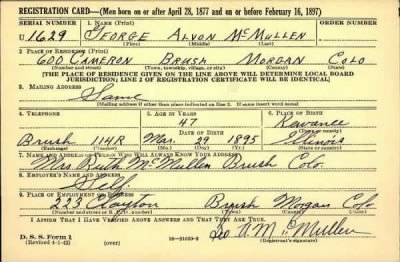 REGISTRATION CARD—(Men born on or after April 28, 1877 and on or before February 16, 1897)
SERIAL NUMBER 1. NAME (Print)
U 1629 GEORGE ALVON McMULLEN
(First) (Middle) (Last)
2. PLACE OF RESIDENCE (Print)
600 CAMERON BRUSH MORGAN COLO
(Number and street) (Town, township, village, or city) (County) (State)
[THE PLACE OF RESIDENCE GIVEN ON THE LINE ABOVE WILL DETERMINE LOCAL BOARD
JURISDICTION; LINE 2 OF REGISTRATION CERTIFICATE WILL BE IDENTICAL]
3. MAILING ADDRESS
Same
[Mailing address if other than place indicated on line 2. If same insert word same]
4. TELEPHONE 5. AGE IN YEARS 6. PLACE OF BIRTH
47 Kewanee
DATE OF BIRTH (Town or county)
Brush 114R Mar. 29 1895 Illinois
(Exchange) (Number) (Mo.) (Day) (Yr.) (State or country)
7. NAME AND ADDRESS OF PERSON WHO WILL ALWAYS KNOW YOUR ADDRESS
Mrs Ruth McMullen Brush Colo.
8. EMPLOYER'S NAME AND ADDRESS
Self.
9. PLACE OF EMPLOYMENT OR BUSINESS
223 Clayton Brush Morgan Colo
(Number and street or R. F. D. number) (Town) (County) (State)
I AFFIRM THAT I HAVE VERIFIED ABOVE ANSWERS AND THAT THEY ARE TRUE.
D. S. S. Form 1
(Revised 4-1-42) (over) 16—21630-2 Geo A. McMullen
(Registrant's signature)